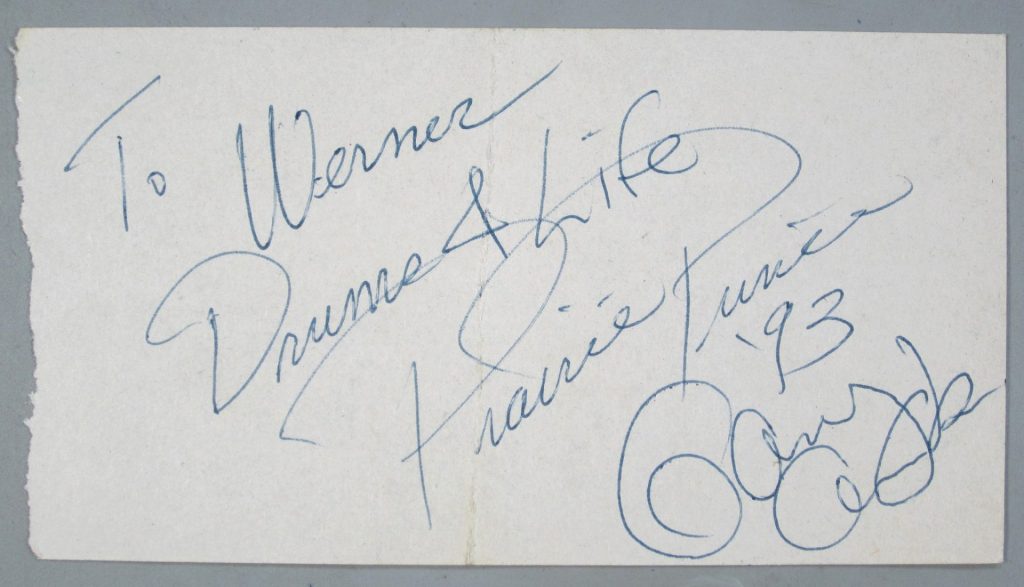 To Werner
Drums & Life
Prairie Prince
'93